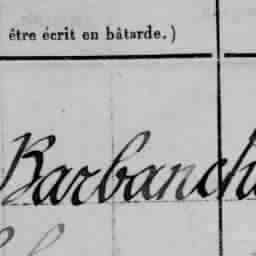 être écrit en bâtarde.)
Barbanch